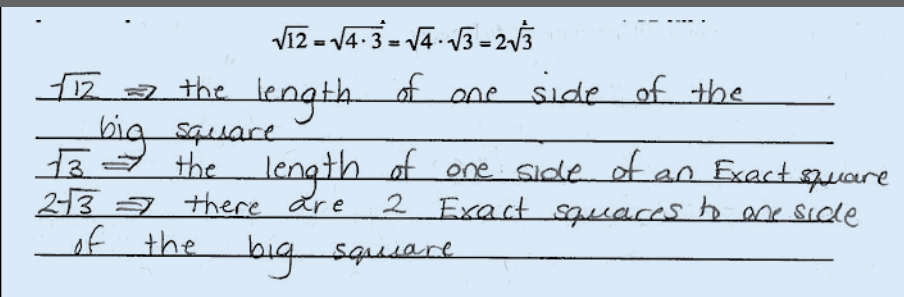 √12 = √4·3 = √4·√3 = 2√3
√12 ⇒ the length of one side of the
big square
√3 ⇒ the length of one side of an Exact square
2√3 ⇒ there are 2 Exact squares to one side
of the big square